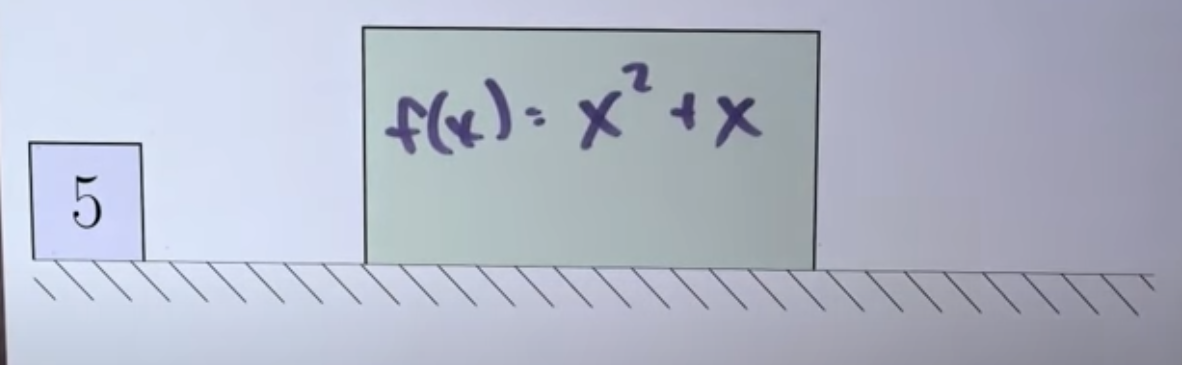 5
f(x) = x² + x